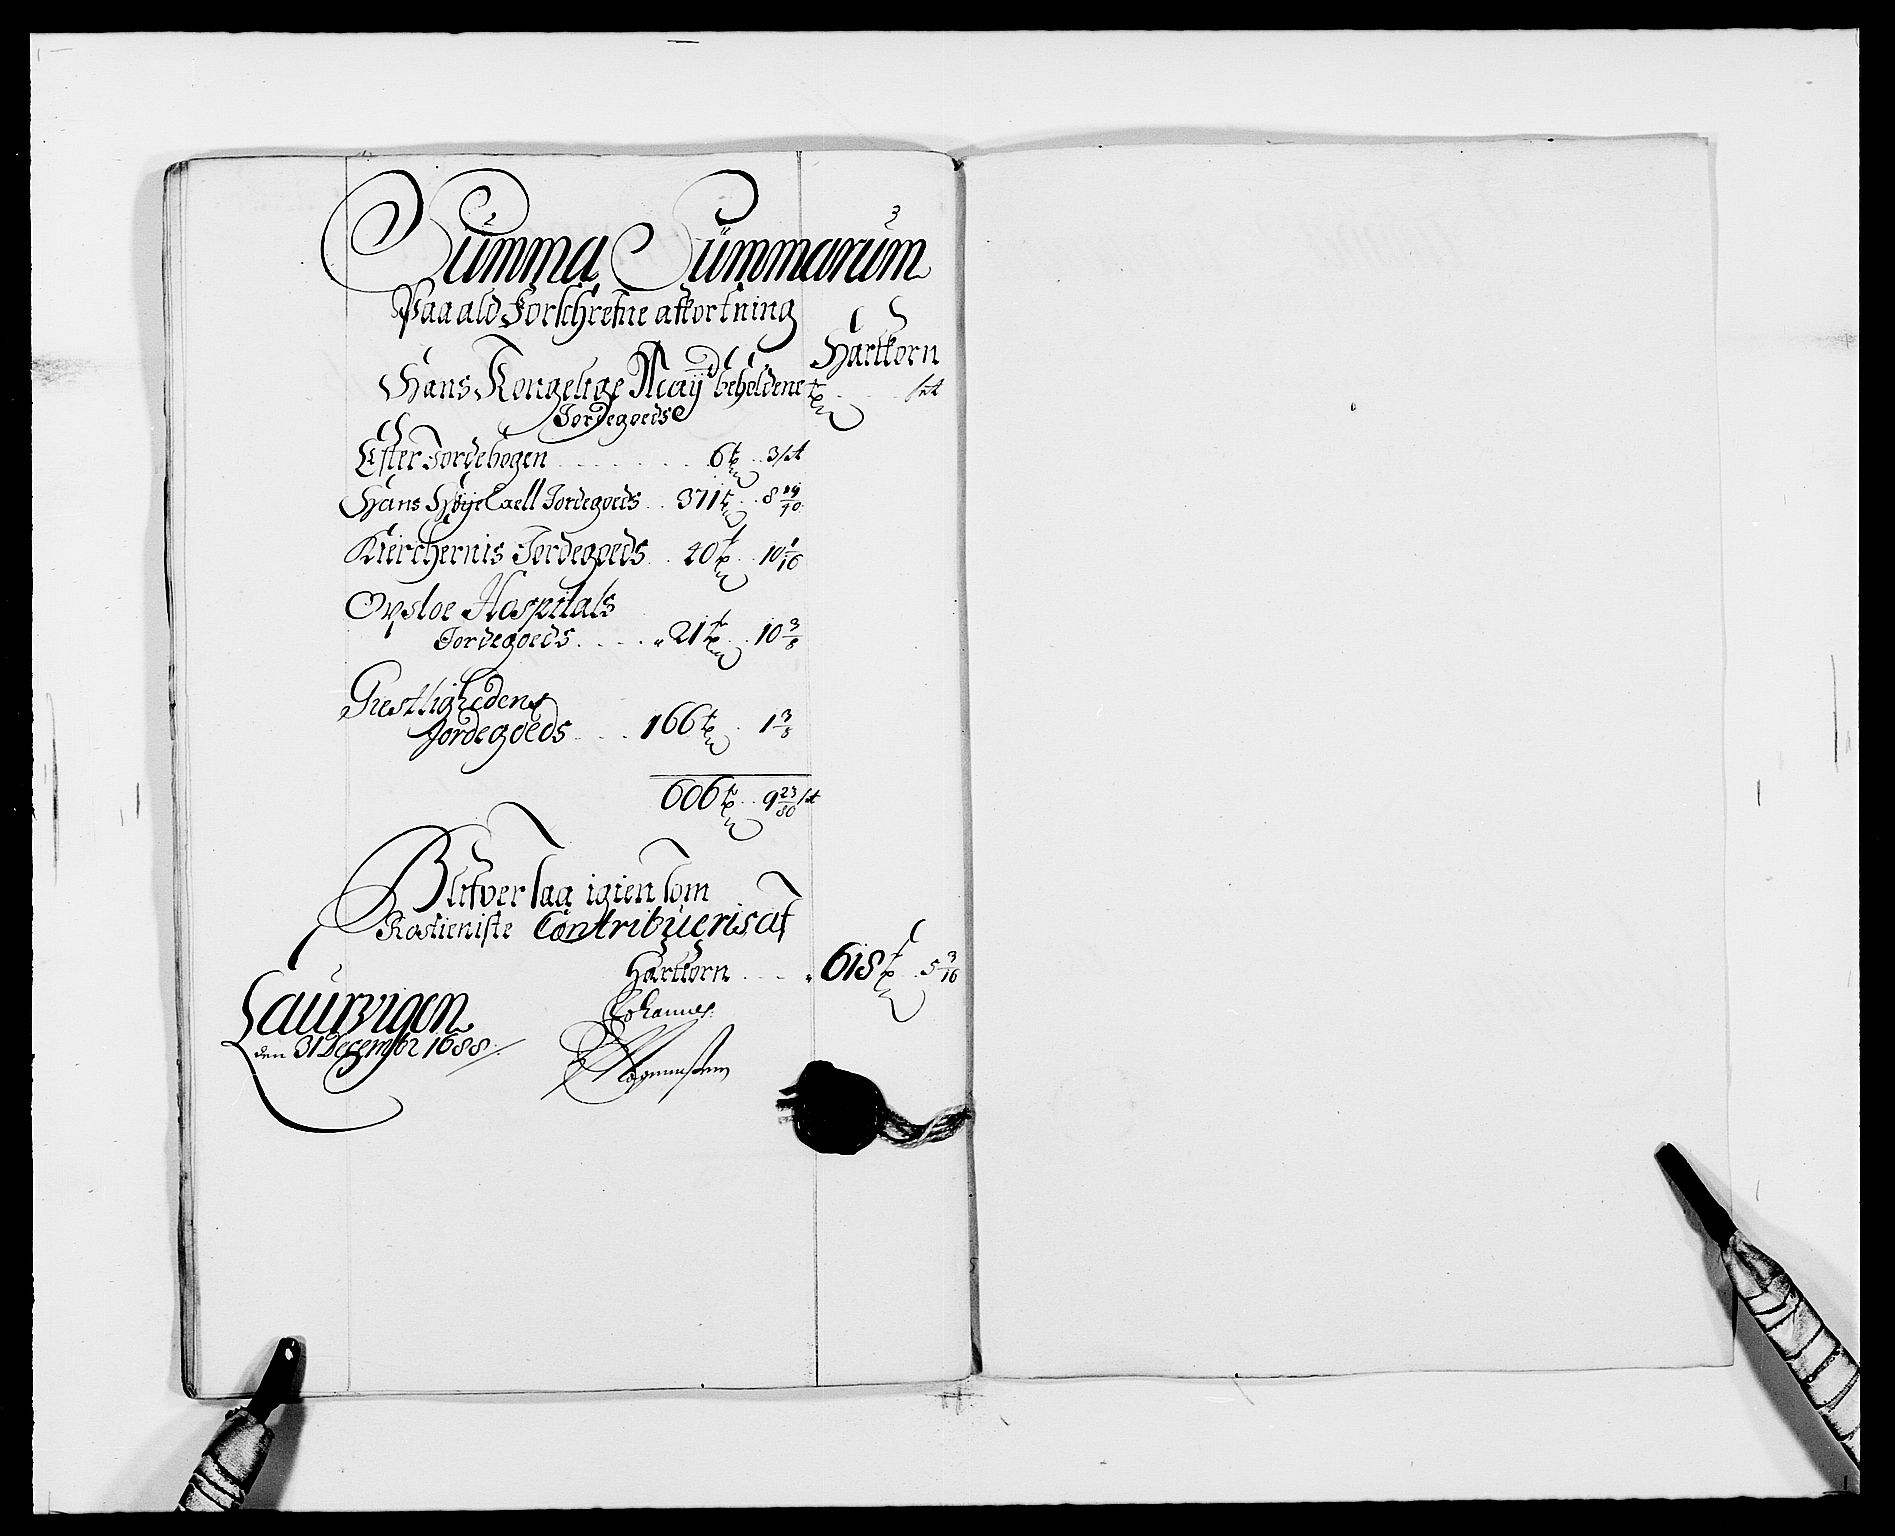 Summa Summarum
Paa ald Forschrefne afkortning
Hartkorn
Hans Kongelige May beholdene
Jordegoeds
Efter Jordebogen . . . . . . . 6 . . 3
Hans Høye Jordegoeds . . 371 . . 8
Kierchernis Jordegoeds . . 40 . . 10 1/16
Opsloe Hospitals
Jordegoeds . . . . 21 . . 10 3/8
Giestlighedens
Jordegoeds . . . 166 . . 1 3/8
606 . . 9 23/80
Blifver saa igien som
Rostieniste Contribuerisat
Hartkorn . . . . 618 . . 5 3/16
Laurvigen
den 31 Decembr 1688
Johannes